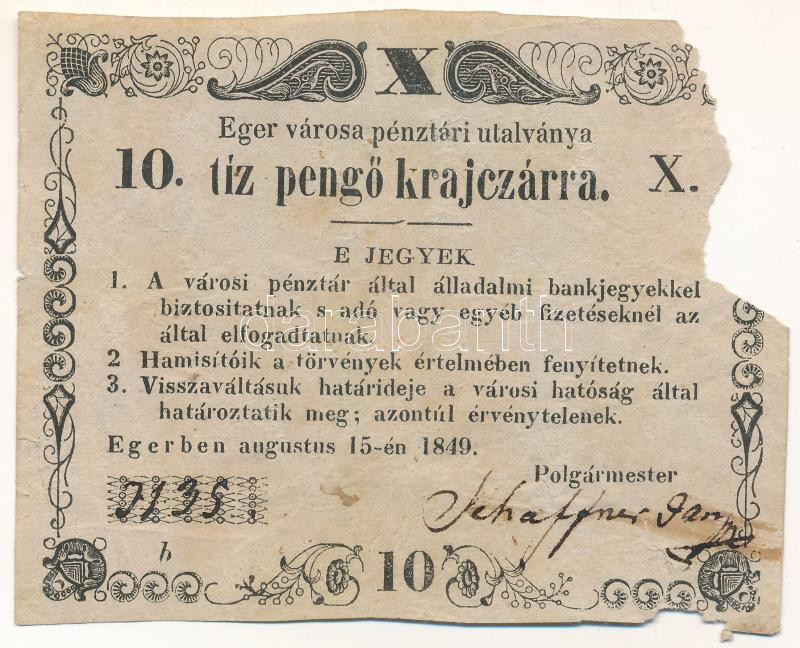 X
Eger városa pénztári utalványa
10. tíz pengő krajczárra. X.
E JEGYEK
1. A városi pénztár által álladalmi bankjegyekkel
biztositatnak s adó vagy egyéb fizetéseknél az
által elfogadtatnak.
2 Hamisítóik a törvények értelmében fenyítetnek.
3. Visszaváltásuk határideje a városi hatóság által
határoztatik meg; azontúl érvénytelenek.
Egerben augustus 15-én 1849.
Polgármester
Schaffner
h
10
darabanth